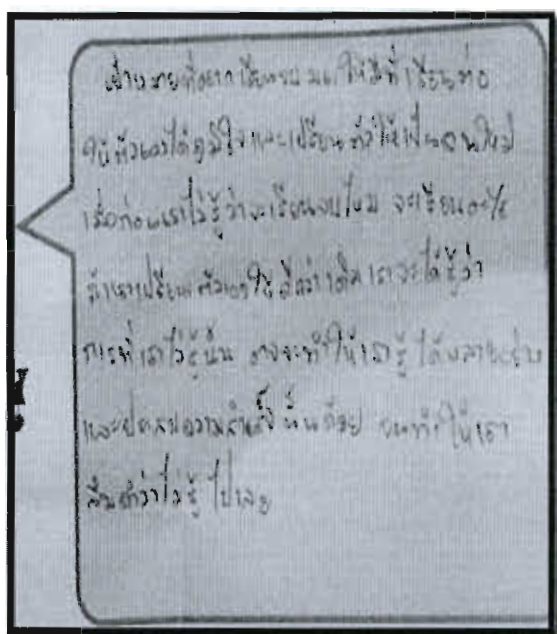 เป้าหมายที่อยากเรียนจบ ม.6 ให้มีที่เรียนต่อ
ให้ตัวเองได้ภูมิใจและเปลี่ยนตัวให้เป็นคนใหม่
เมื่อก่อนเราไม่รู้ว่าจะเรียนจบไหม จะเรียนอะไร
ถ้าเราเปลี่ยนตัวเองให้ดีกว่าเดิม เราจะได้รู้ว่า
การที่เราไม่รู้นั้น อาจจะทำให้เรารู้ได้หลายอย่าง
และประสบความสำเร็จนั้นด้วย จนทำให้เรา
ลืมคำว่าไม่รู้ไปเลย